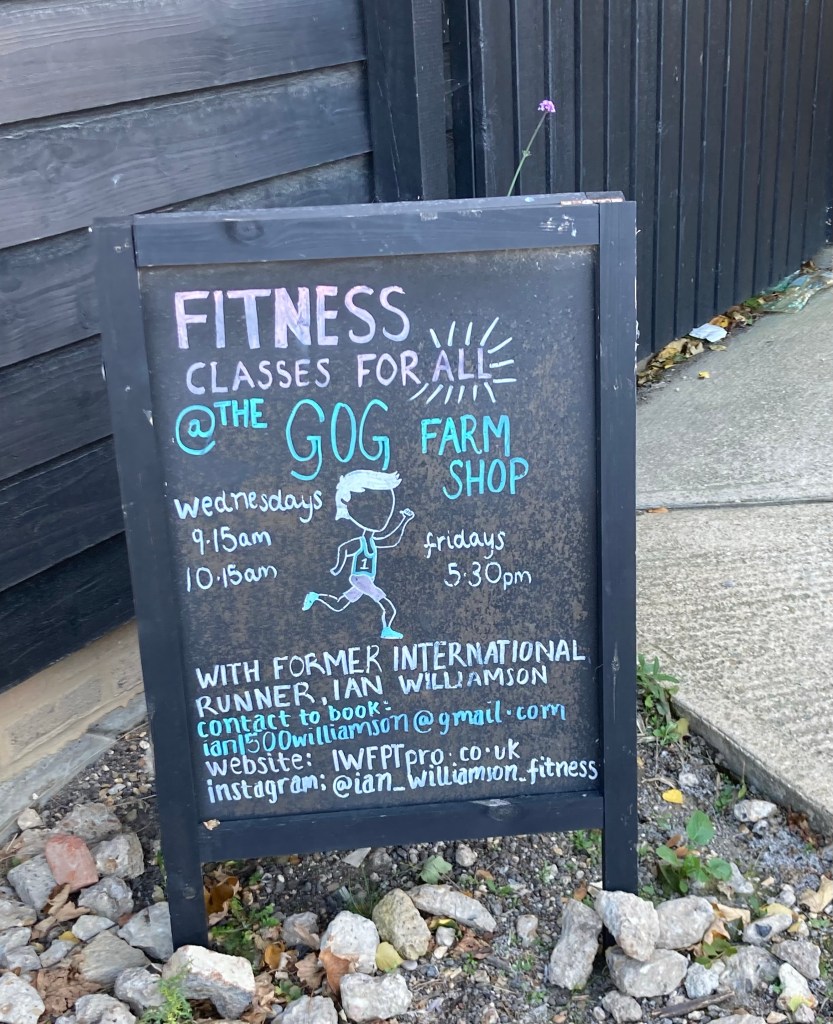 FITNESS
CLASSES FOR ALL
@ THE GOG FARM
SHOP
wednesdays
9.15am
10.15am
fridays
5.30pm
1
WITH FORMER INTERNATIONAL
RUNNER, IAN WILLIAMSON
contact to book:
ian1500williamson@gmail.com
website: IWFPTpro.co.uk
instagram: @ian_williamson_fitness